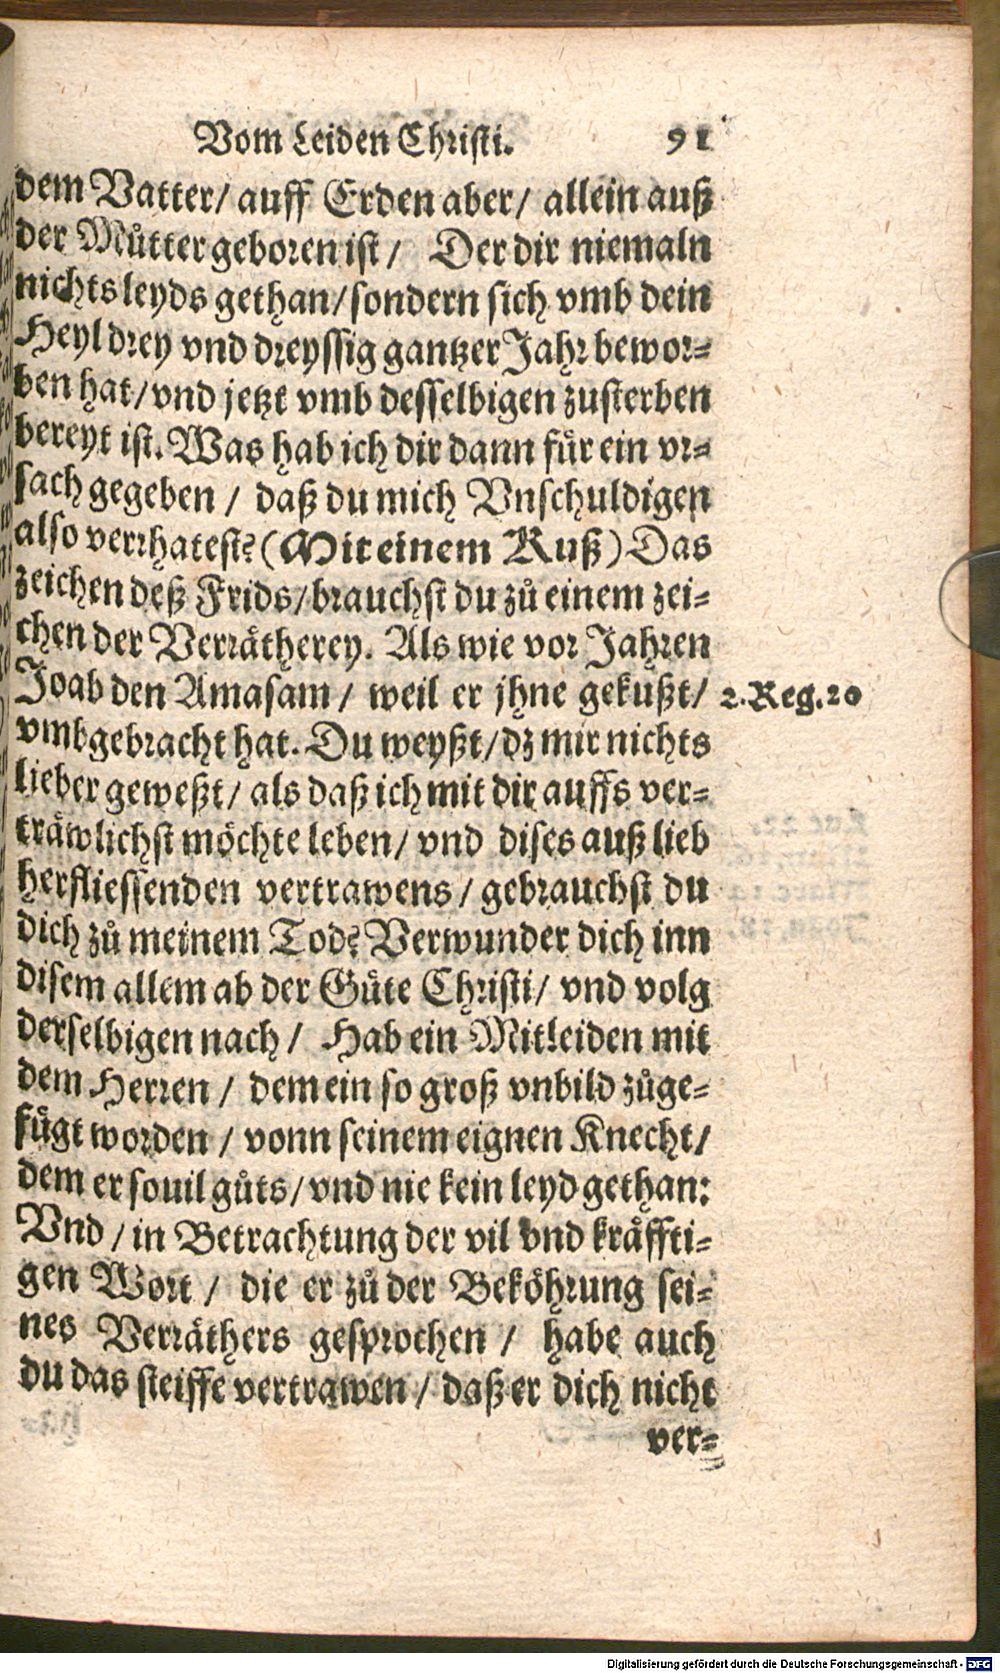 Vom Leiden Christi. 91
dem Vatter/ auff Erden aber/ allein auß
der Můtter geboren ist/ Der dir niemaln
nichts leyds gethan/ sondern sich vmb dein
Heyl drey vnd dreyssig gantzer Jahr bewor⸗
ben hat/ vnd jetzt vmb desselbigen zusterben
bereyt ist. Was hab ich dir dann für ein vr⸗
sach gegeben / daß du mich Vnschuldigen
also verrhatest? (Mit einem Kuß) Das
zeichen deß Frids/ brauchst du zů einem zei⸗
chen der Verrätherey. Als wie vor Jahren
Joab den Amasam / weil er jhne gekußt/ 2. Reg. 20
vmbgebracht hat. Du weyßt/ dz mir nichts
lieber geweßt/ als daß ich mit dir auffs ver⸗
träwlichst möchte leben/ vnd dises auß lieb
herfliessenden vertrawens / gebrauchst du
dich zů meinem Tod? Verwunder dich inn
disem allem ab der Güte Christi/ vnd volg
derselbigen nach / Hab ein Mitleiden mit
dem Herren / dem ein so groß vnbild zůge⸗
fügt worden / vonn seinem eignen Knecht/
dem er souil gůts/ vnd nie kein leyd gethan:
Vnd / in Betrachtung der vil vnd kräffti⸗
gen Wort / die er zů der Beköhrung sei⸗
nes Verräthers gesprochen / habe auch
du das steiffe vertrawen / daß er dich nicht
ver⸗
Digitalisierung gefördert durch die Deutsche Forschungsgemeinschaft - DFG